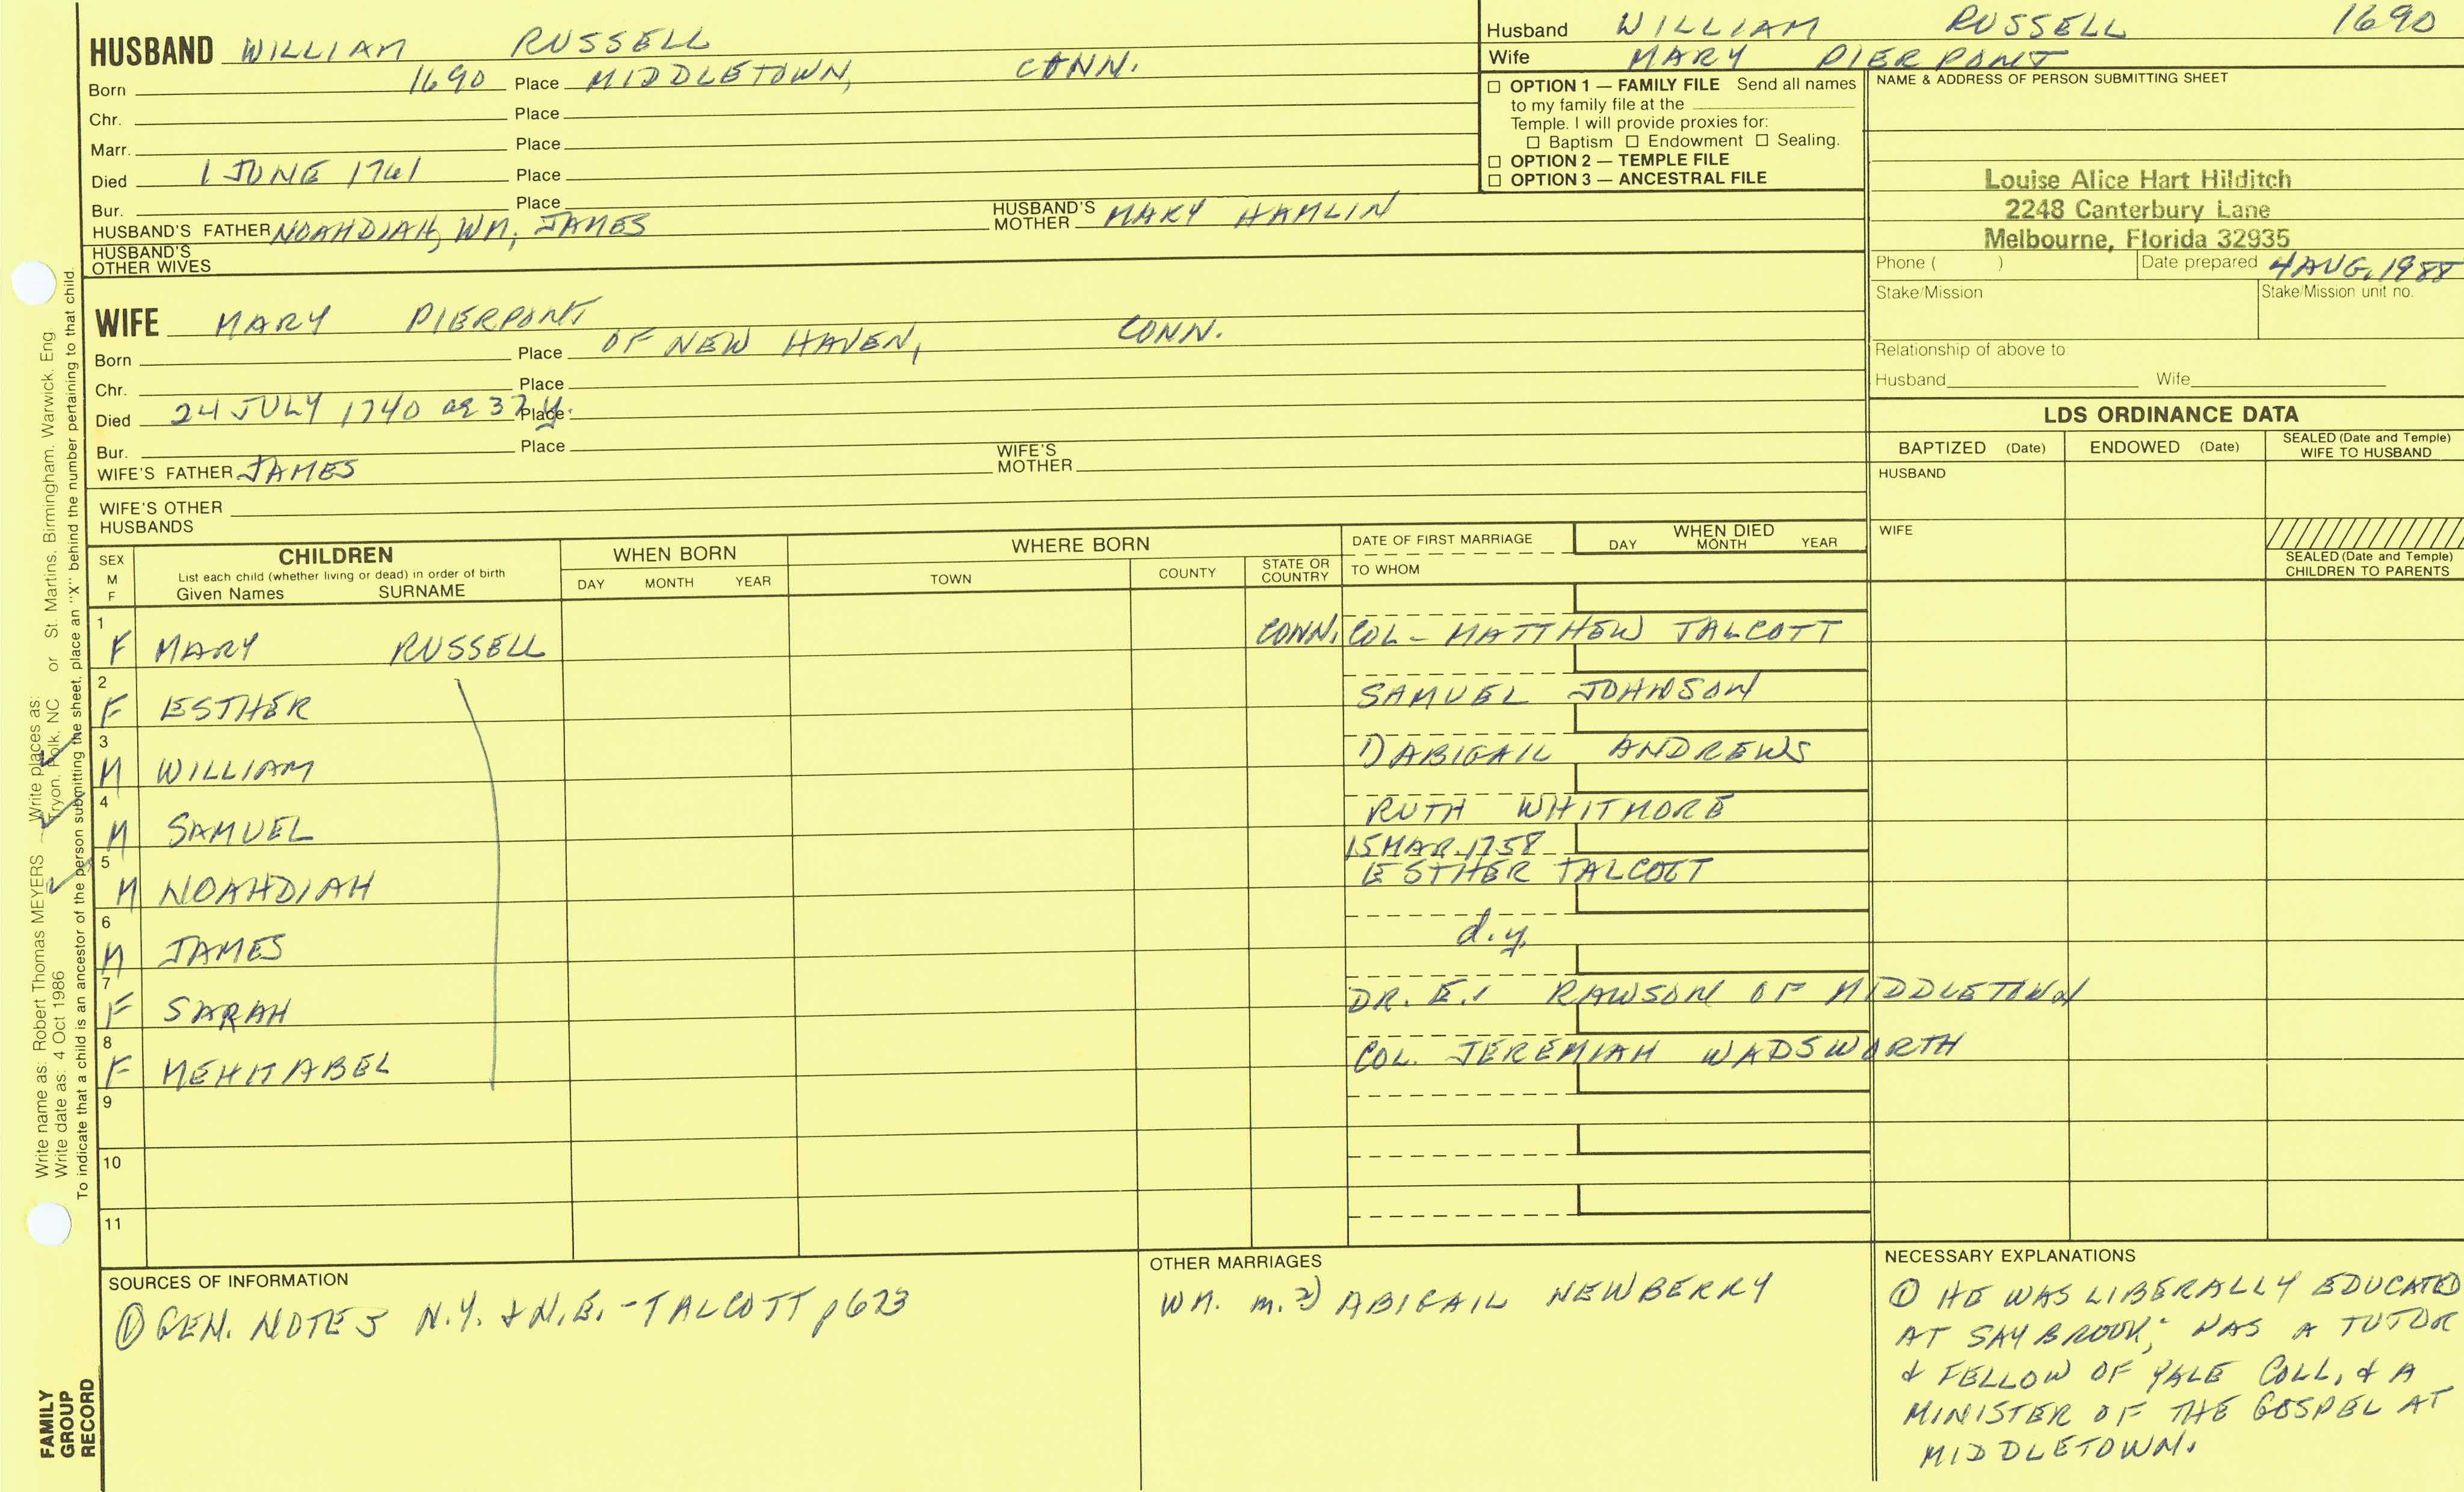 HUSBAND WILLIAM RUSSELL
Born 1690 Place MIDDLETOWN, CONN.
Chr. Place
Marr. Place
Died 1 JUNE 1761 Place
Bur. Place
HUSBAND'S FATHER NOAHDIAH, WM, JAMES HUSBAND'S MOTHER MARY HAMLIN
HUSBAND'S
OTHER WIVES
Husband WILLIAM RUSSELL 1690
Wife MARY PIERPONT
☐ OPTION 1 — FAMILY FILE Send all names
to my family file at the
Temple. I will provide proxies for:
☐ Baptism ☐ Endowment ☐ Sealing.
☐ OPTION 2 — TEMPLE FILE
☐ OPTION 3 — ANCESTRAL FILE
NAME & ADDRESS OF PERSON SUBMITTING SHEET
Louise Alice Hart Hilditch
2248 Canterbury Lane
Melbourne, Florida 32935
Phone ( ) Date prepared 4 AUG, 1988
Stake/Mission Stake/Mission unit no.
Relationship of above to:
Husband Wife
WIFE MARY PIERPONT
Born Place OF NEW HAVEN, CONN.
Chr. Place
Died 24 JULY 1740 ae 37 y. Place
Bur. Place
WIFE'S FATHER JAMES WIFE'S MOTHER
WIFE'S OTHER
HUSBANDS
LDS ORDINANCE DATA
BAPTIZED (Date) ENDOWED (Date) SEALED (Date and Temple) WIFE TO HUSBAND
HUSBAND
WIFE
SEALED (Date and Temple)
CHILDREN TO PARENTS
SEX
M
F
CHILDREN
List each child (whether living or dead) in order of birth
Given Names SURNAME
WHEN BORN
DAY MONTH YEAR
WHERE BORN
TOWN COUNTY STATE OR COUNTRY
DATE OF FIRST MARRIAGE
TO WHOM
WHEN DIED
DAY MONTH YEAR
1 F MARY RUSSELL CONN. COL- MATTHEW TALCOTT
2 F ESTHER SAMUEL JOHNSON
3 M WILLIAM 1) ABIGAIL ANDREWS
4 M SAMUEL RUTH WHITMORE
15 MAR. 1758
5 M NOAHDIAH ESTHER TALCOTT
6 M JAMES d.y.
7 F SARAH DR. E. RAWSON OF MIDDLETOWN
8 F MEHITABEL COL. JEREMIAH WADSWORTH
9
10
11
SOURCES OF INFORMATION
① GEN. NOTES N.Y. & N.E. - TALCOTT p 623
OTHER MARRIAGES
WM. m. 2) ABIGAIL NEWBERRY
NECESSARY EXPLANATIONS
① HE WAS LIBERALLY EDUCATED
AT SAYBROOK; WAS A TUTOR
& FELLOW OF YALE COLL, & A
MINISTER OF THE GOSPEL AT
MIDDLETOWN.
Write name as: Robert Thomas MEYERS Write places as: Tryon, Polk, NC or St. Martins, Birmingham, Warwick, Eng
Write date as: 4 Oct 1986
To indicate that a child is an ancestor of the person submitting the sheet, place an "X" behind the number pertaining to that child.
FAMILY
GROUP
RECORD